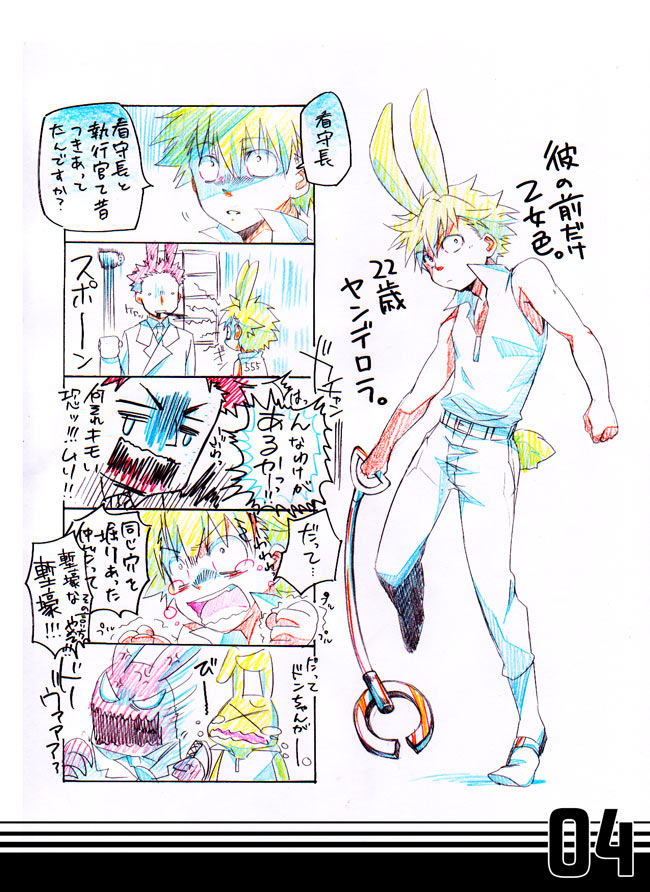 看守長
看守長と
執行官て昔
つきあって
たんですか?
スポーン
555
ガシャン
はっ
んなわけが
あるかーっ!!
何それキモい
恐ッ!!!ムリ!!
だって…
同じ穴を
堀りあった
仲だって
塹壕な
塹壕!!!
プル
プル
だって
ドンちゃんが
びーっ
ヴァァァァ?
彼の前だけ
乙女色。
22歳
ヤンデロラ。
04